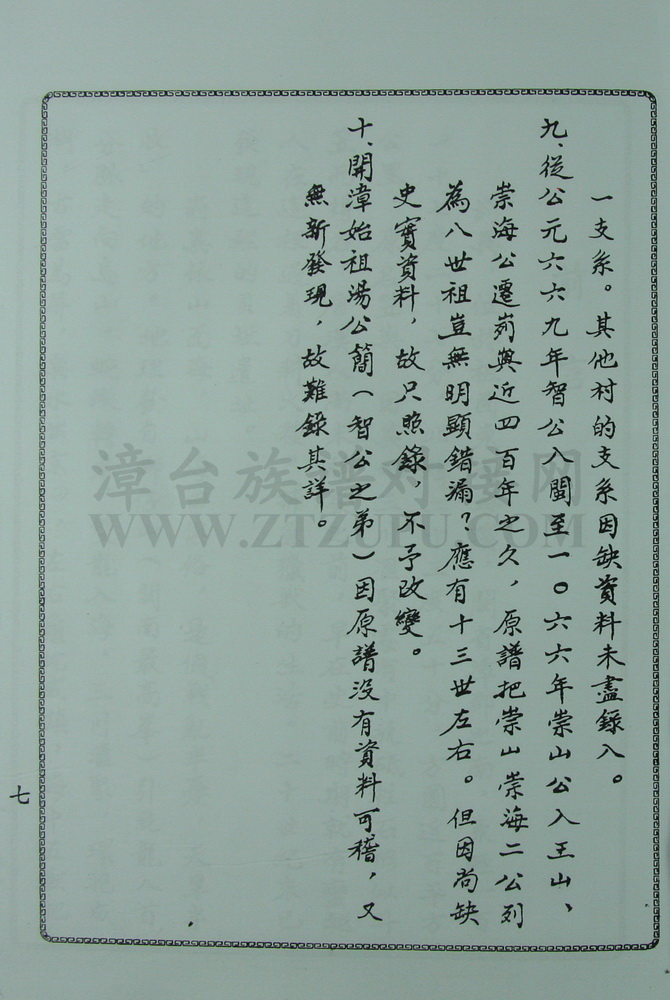 一支系。其他村的支系因缺資料未盡錄入。
九、從公元六六九年智公入閩至一〇六六年崇山公入王山、
崇海公遷峛與近四百年之久，原譜把崇山崇海二公列
為八世祖豈無明顯錯漏？應有十三世左右。但因尚缺
史實資料，故只照錄，不予改變。
十、開漳始祖湯公簡（智公之弟）因原譜没有資料可稽，又
無新發現，故難錄其詳。
七
漳台族譜对接网
WWW.ZTZUPU.COM